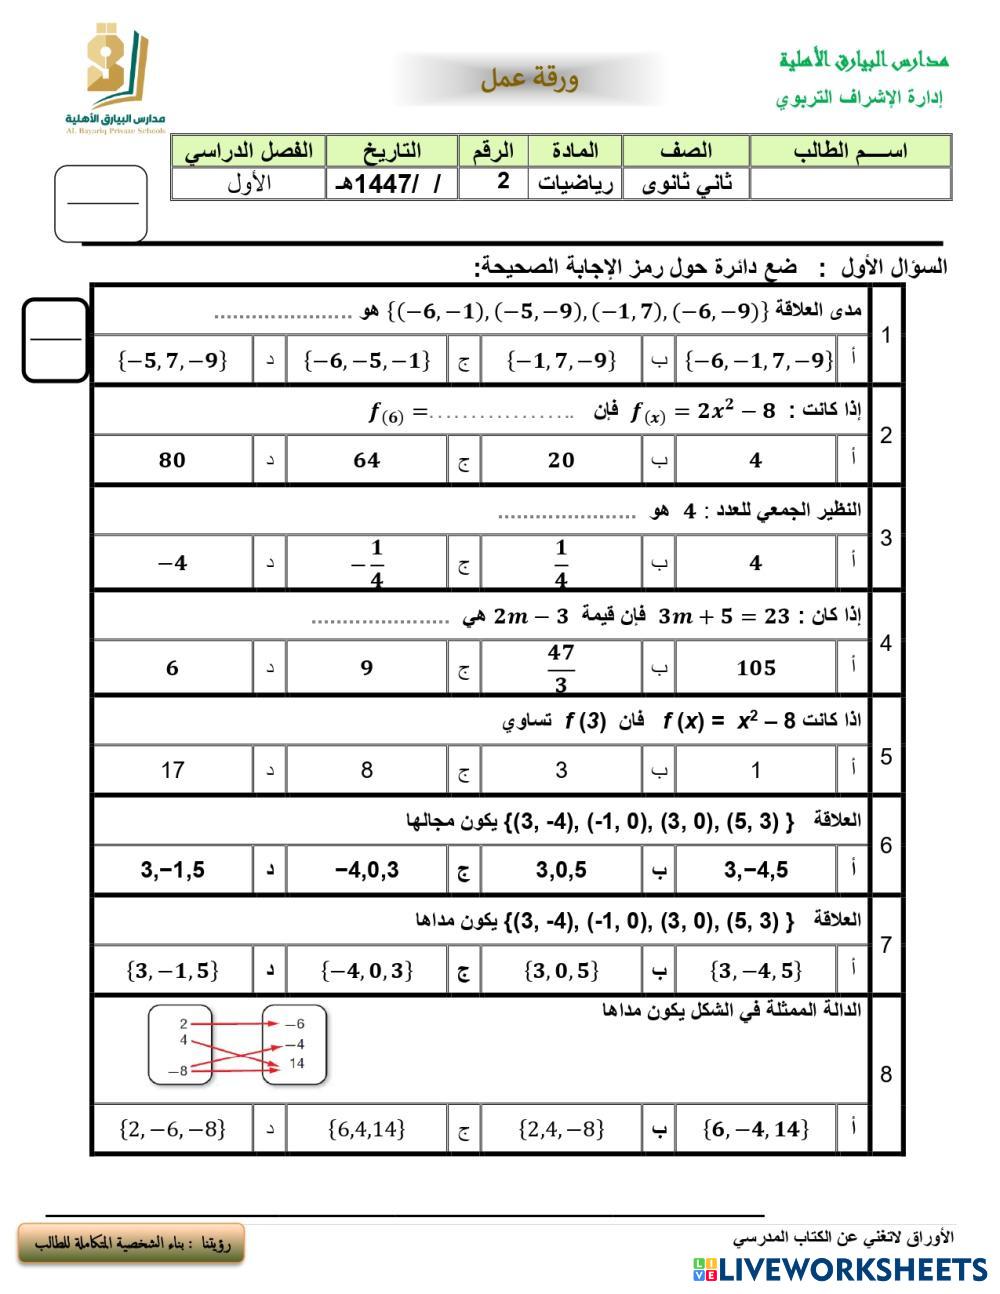 مدارس البيارق الأهلية
إدارة الإشراف التربوي
ورقة عمل
مدارس البيارق الأهلية
AL Bayariq Private Schools
اســـم الطالب الصف المادة الرقم التاريخ الفصل الدراسي
ثاني ثانوى رياضيات 2 / /1447هـ الأول
السؤال الأول : ضع دائرة حول رمز الإجابة الصحيحة:
1 مدى العلاقة {(−6, −1), (−5, −9), (−1, 7), (−6, −9)} هو ......................
أ {−6, −1, 7, −9} ب {−1, 7, −9} ج {−6, −5, −1} د {−5, 7, −9}
2 إذا كانت : f(x) = 2x² − 8 فإن f(6) =..................
أ 4 ب 20 ج 64 د 80
3 النظير الجمعي للعدد : 4 هو ......................
أ 4 ب 1/4 ج −1/4 د −4
4 إذا كان : 3m + 5 = 23 فإن قيمة 2m − 3 هي ......................
أ 105 ب 47/3 ج 9 د 6
5 اذا كانت f (x) = x² – 8 فان f (3) تساوي
أ 1 ب 3 ج 8 د 17
6 العلاقة {(3, -4), (-1, 0), (3, 0), (5, 3) } يكون مجالها
أ 3,−4,5 ب 3,0,5 ج −4,0,3 د 3,−1,5
7 العلاقة {(3, -4), (-1, 0), (3, 0), (5, 3) } يكون مداها
أ {3, −4, 5} ب {3, 0, 5} ج {−4, 0, 3} د {3, −1, 5}
8 الدالة الممثلة في الشكل يكون مداها
2 −6
4 −4
−8 14
أ {6, −4, 14} ب {2,4, −8} ج {6,4,14} د {2, −6, −8}
الأوراق لاتغني عن الكتاب المدرسي
رؤيتنا : بناء الشخصية المتكاملة للطالب
LIVE LIVEWORKSHEETS